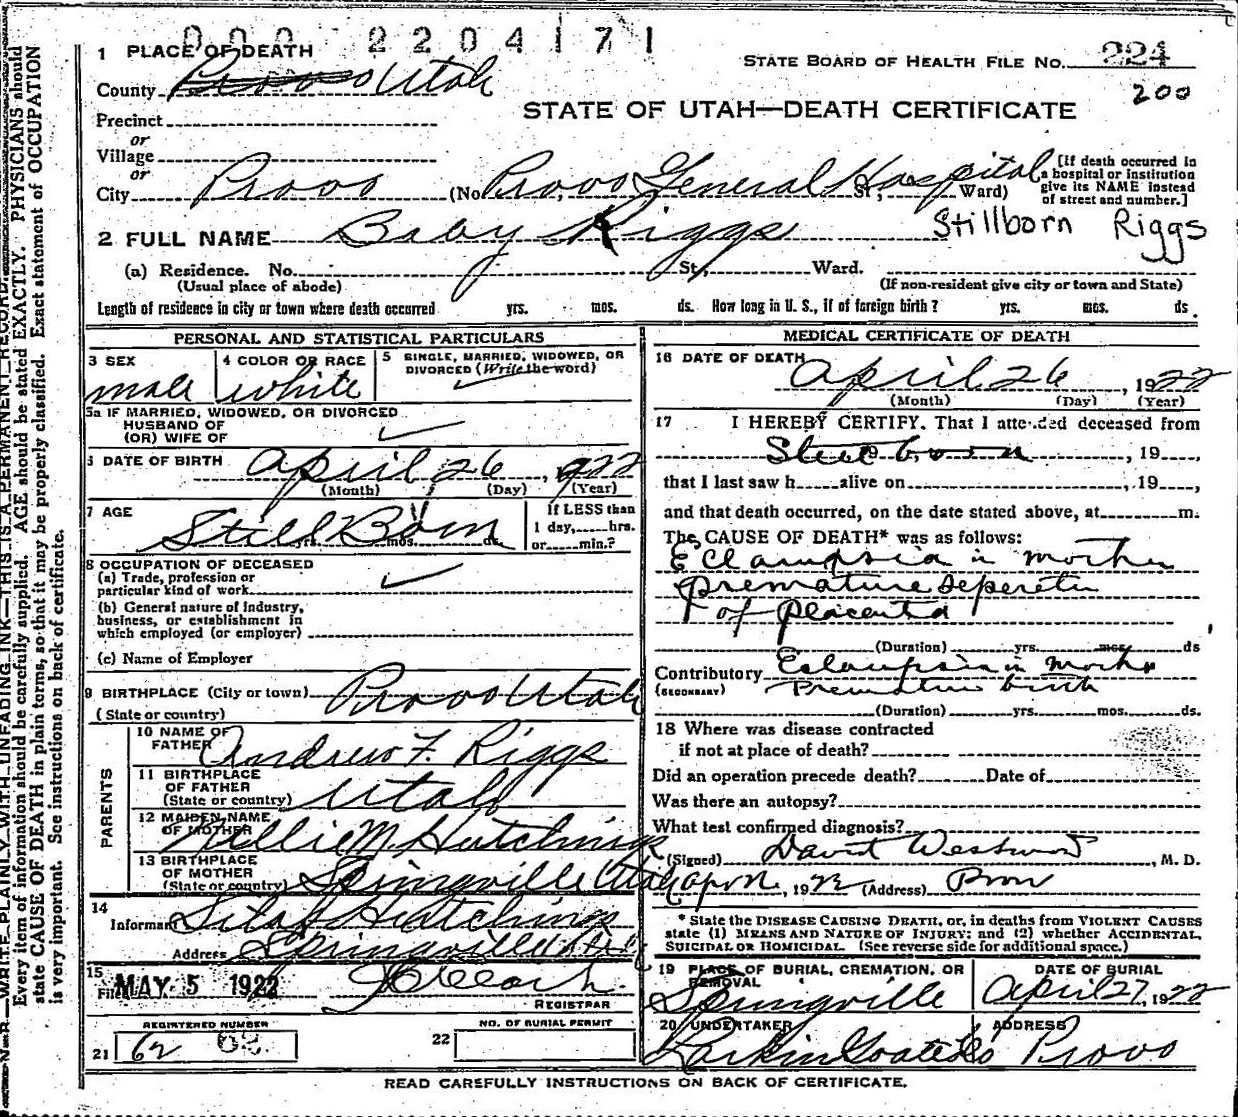 000 2204171
1 PLACE OF DEATH
STATE BOARD OF HEALTH FILE No. 224
County Provo Utah
200
STATE OF UTAH—DEATH CERTIFICATE
Precinct
or
Village
or
City Provo (No. Provo General Hospital St., Ward) [If death occurred in a hospital or institution give its NAME instead of street and number.]
2 FULL NAME Baby Riggs Stillborn Riggs
(a) Residence. No. St., Ward.
(Usual place of abode) (If non-resident give city or town and State)
Length of residence in city or town where death occurred yrs. mos. ds. How long in U. S., if of foreign birth? yrs. mos. ds.
PERSONAL AND STATISTICAL PARTICULARS
3 SEX male
4 COLOR OR RACE white
5 SINGLE, MARRIED, WIDOWED, OR DIVORCED (Write the word) ✓
5a IF MARRIED, WIDOWED, OR DIVORCED
HUSBAND OF
(OR) WIFE OF ✓
6 DATE OF BIRTH April 26, 1922
(Month) (Day) (Year)
7 AGE Still Born yrs. mos. ds.
If LESS than
1 day, hrs.
or min.?
8 OCCUPATION OF DECEASED
(a) Trade, profession or
particular kind of work ✓
(b) General nature of Industry,
business, or establishment in
which employed (or employer)
(c) Name of Employer
9 BIRTHPLACE (City or town) Provo Utah
(State or country)
PARENTS
10 NAME OF FATHER Andrew F. Riggs
11 BIRTHPLACE OF FATHER (State or country) Utah
12 MAIDEN NAME OF MOTHER Nellie M. Hutchings
13 BIRTHPLACE OF MOTHER (State or country) Springville Utah
14 Informant Hutchings
Address Springville Utah
15 Filed MAY 5 1922
REGISTRAR
REGISTERED NUMBER
21 62 62
NO. OF BURIAL PERMIT
22
MEDICAL CERTIFICATE OF DEATH
16 DATE OF DEATH April 26, 1922
(Month) (Day) (Year)
17 I HEREBY CERTIFY. That I attended deceased from
Still born, 19
that I last saw h alive on , 19 ,
and that death occurred, on the date stated above, at m.
The CAUSE OF DEATH* was as follows:
Eclampsia in mother
premature seperetin
of placenta
(Duration) yrs. mos. ds
Contributory Eclampsia in mother
(SECONDARY) Premature birth
(Duration) yrs. mos. ds.
18 Where was disease contracted
if not at place of death?
Did an operation precede death? Date of
Was there an autopsy?
What test confirmed diagnosis?
(Signed) David Westwood, M. D.
, 1922 (Address) Provo
* State the DISEASE CAUSING DEATH, or, in deaths from VIOLENT CAUSES
state (1) MEANS AND NATURE OF INJURY; and (2) whether ACCIDENTAL,
SUICIDAL OR HOMICIDAL. (See reverse side for additional space.)
19 PLACE OF BURIAL, CREMATION, OR REMOVAL Springville
DATE OF BURIAL April 27, 1922
20 UNDERTAKER Larkin
ADDRESS Provo
READ CAREFULLY INSTRUCTIONS ON BACK OF CERTIFICATE.
N. B.—WRITE PLAINLY WITH UNFADING INK—THIS IS A PERMANENT RECORD.
Every item of information should be carefully supplied. AGE should be stated EXACTLY. PHYSICIANS should
state CAUSE OF DEATH in plain terms, so that it may be properly classified. Exact statement of OCCUPATION
is very important. See instructions on back of certificate.